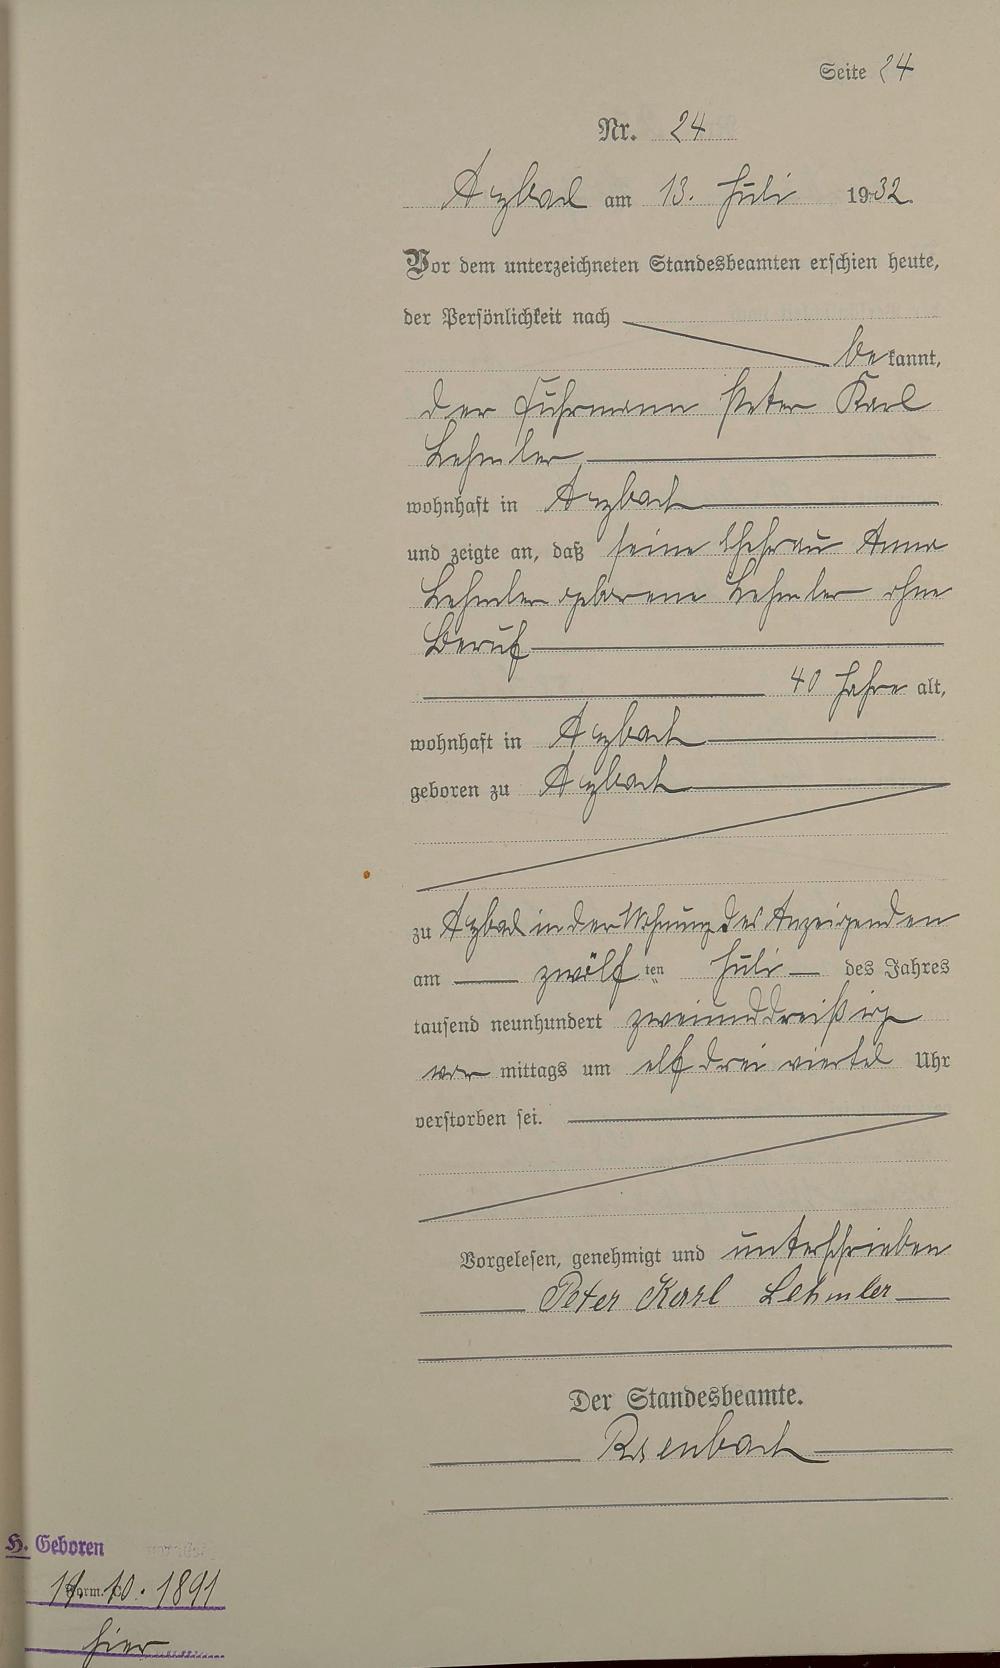 Seite 24
Nr. 24
Arzbach am 13. Juli 1932.
Vor dem unterzeichneten Standesbeamten erschien heute,
der Persönlichkeit nach
bekannt,
der Fuhrmann Peter Karl
Lehmler
wohnhaft in Arzbach
und zeigte an, daß seine Ehefrau Anna
Lehmler geborene Lehmler ohne
Beruf
40 Jahre alt,
wohnhaft in Arzbach
geboren zu Arzbach
zu Arzbach in der Wohnung des Anzeigenden
am zwölften Juli des Jahres
tausend neunhundert zweiunddreißig
vormittags um elf drei viertel Uhr
verstorben sei.
Vorgelesen, genehmigt und unterschrieben
Peter Karl Lehmler
Der Standesbeamte.
H. Geboren
10. 1891
hier